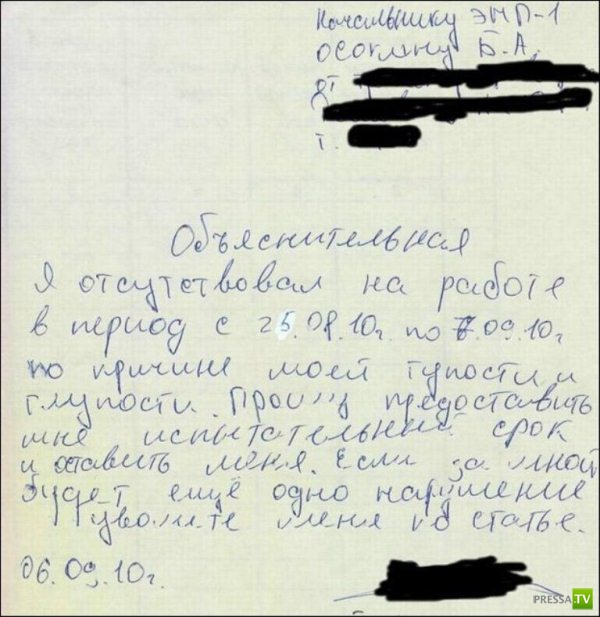 Начальнику ЭМП-1
Осокину Б.А.
от
г.
Объяснительная
Я отсутствовал на работе
в период с 25.08.10г. по 6.09.10г.
по причине моей тупости и
глупости. Прошу предоставить
мне испытательный срок
и оставить меня. Если за мной
будет ещё одно нарушение
увольте меня по статье.
06.09.10г.
PRESSA.TV